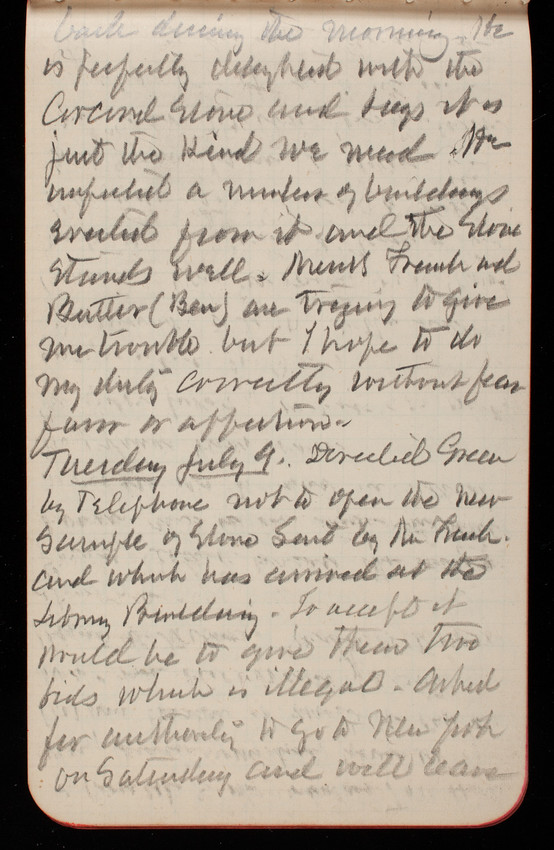 back during the morning. He
is perfectly delighted with the
Concord Stone and says it is
just the kind we need. He
inspected a number of buildings
erected from it and the Stone
stands well. French and
Butler (Ben) are trying to give
me trouble but I hope to do
my duty correctly without fear
favor or affection.
Tuesday July 9. Directed Green
by Telephone not to open the new
sample of Stone sent by Mr French
and which has arrived at the
Library Building. To accept it
would be to give them two
bids which is illegal. Asked
for authority to go to New York
on Saturday and will leave